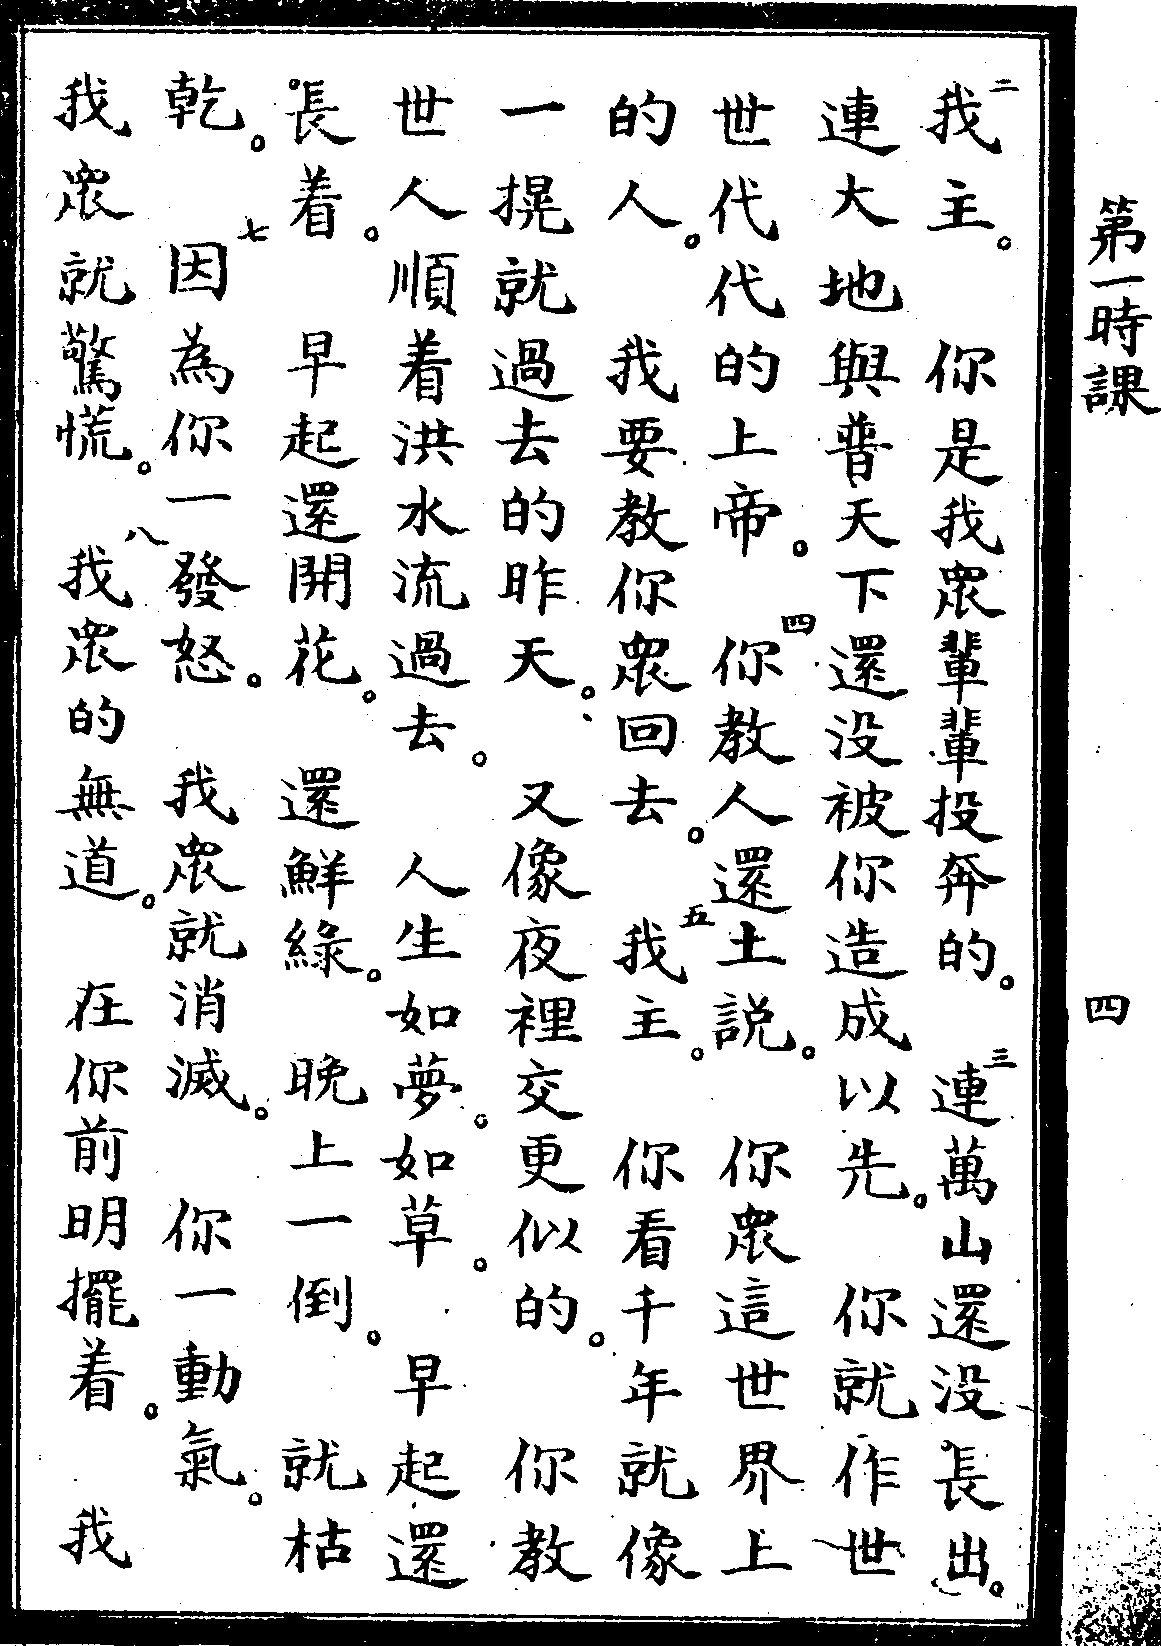 第一時課 四
二我主。你是我眾輩輩投奔的。三連萬山還没長出。
連大地與普天下還没被你造成以先。你就作世
世代代的上帝。四你教人還土說。你眾這世界上
的人。我要教你眾回去。五我主。你看千年就像
一提就過去的昨天。又像夜裡交更似的。你教
世人順着洪水流過去。人生如夢。如草。早起還
長着。早起還開花。還鮮綠。晚上一倒。就枯
乾。七因為你一發怒。我眾就消滅。你一動氣。
我眾就驚慌。八我眾的無道。在你前明擺着。我